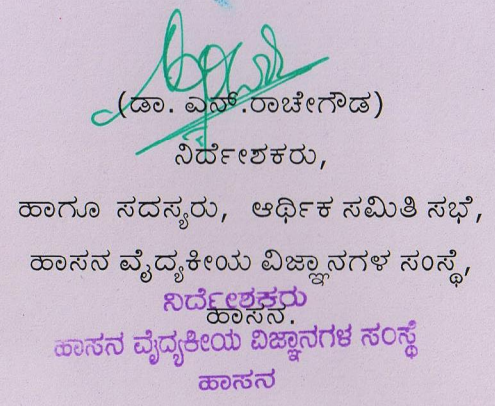 (ಡಾ. ಎನ್.ರಾಚೇಗೌಡ)
ನಿರ್ದೇಶಕರು,
ಹಾಗೂ ಸದಸ್ಯರು, ಆರ್ಥಿಕ ಸಮಿತಿ ಸಭೆ,
ಹಾಸನ ವೈದ್ಯಕೀಯ ವಿಜ್ಞಾನಗಳ ಸಂಸ್ಥೆ,
ಹಾಸನ.
ನಿರ್ದೇಶಕರು
ಹಾಸನ ವೈದ್ಯಕೀಯ ವಿಜ್ಞಾನಗಳ ಸಂಸ್ಥೆ
ಹಾಸನ